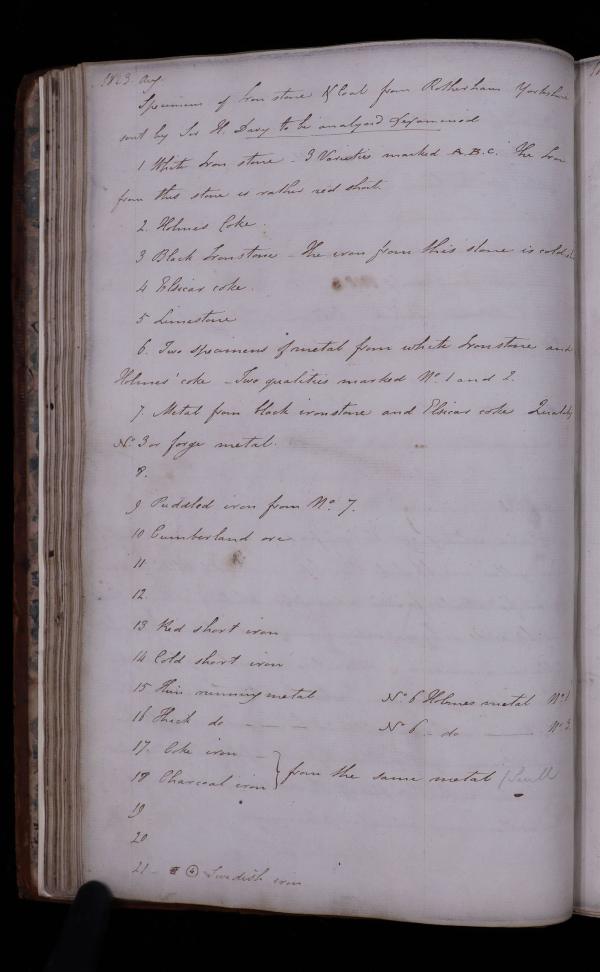 1823 Aug
Specimens of Iron stone & Coal from Rotherham Yorkshire
sent by Sir H. Davy to be analyzed & examined
1 White Iron stone - 3 Varieties marked A.B.C. The Iron
from this stone is rather red short.
2. Holmes Coke.
3 Black Ironstone - the iron from this stone is cold
4 Elsicar coke.
5 Limestone
6. Two specimens of metal from white Ironstone and
Holmes' coke - Two qualities marked No. 1 and 2.
7. Metal from black ironstone and Elsicar coke Quality
No. 3 or forge metal.
8.
9 Puddled iron from No. 7.
10 Cumberland ore
11
12.
13 Red short iron
14 Cold short iron
15 Thin running metal No. 6 Holmes metal No. 1
16 Thick do - - - No. 6 - do - No.
17. Coke iron -
18 Charcoal iron } from the same metal
19
20
21 - (4) Swedish iron